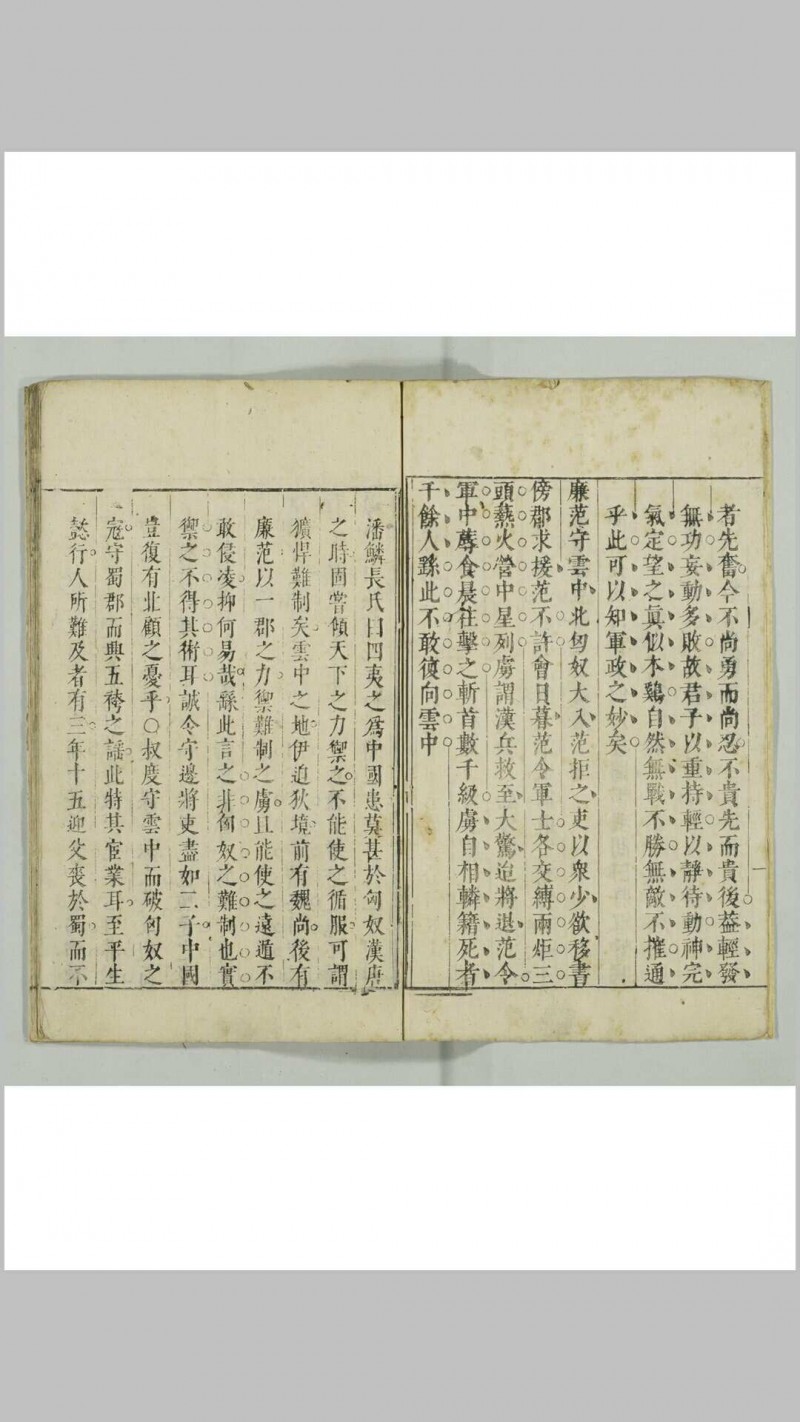 者先奮今不尚勇而尚忍不貴先而貴後葢輕發
無功妄動多敗故君子以重持輕以靜待動神完
氣定望之真似木鷄自然無戰不勝無敵不摧通
乎此可以知軍政之妙矣
廉范守雲中北匈奴大入范拒之吏以衆少欲移書
傍郡求援范不許會日暮范令軍士各交縛兩炬三
頭爇火營中星列虜謂漢兵救至大驚迨將退范令
軍中蓐食晨往擊之斬首數千級虜自相轔籍死者
千餘人繇此不敢復向雲中
潘鱗長氏曰四夷之爲中國患莫甚於匈奴漢唐
之時固嘗傾天下之力禦之不能使之循服可謂
獷悍難制矣雲中之地伊迫狄境前有魏尚後有
廉范以一郡之力禦難制之虜且能使之遠遁不
敢侵凌抑何易哉繇此言之非匈奴之難制也實
禦之不得其術耳誠令守邊將吏盡如二子中國
豈復有北顧之憂乎○叔度守雲中而破匈奴之
寇守蜀郡而興五袴之謡此特其宦業耳至平生
懿行人所難及者有三年十五迎父喪於蜀而不